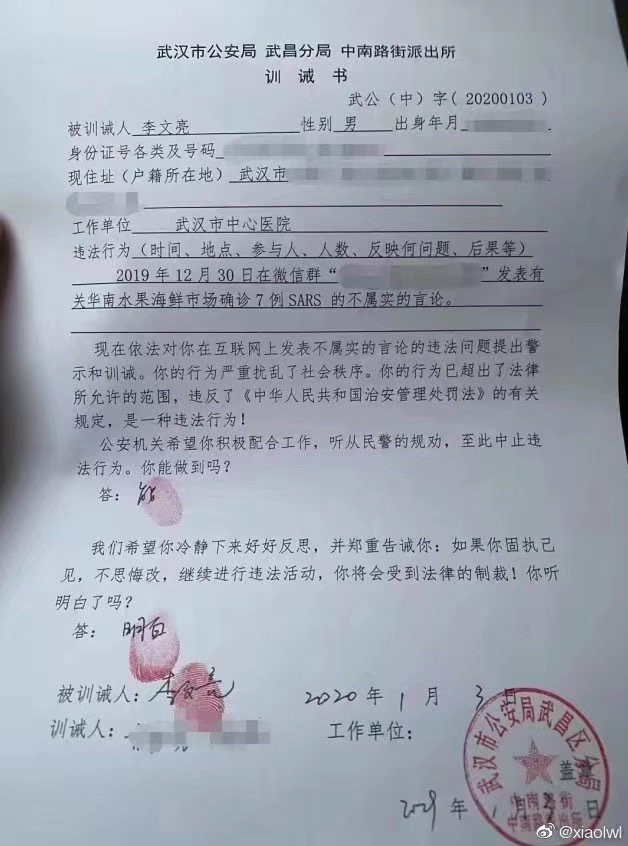 武汉市公安局 武昌分局 中南路街派出所
训 诫 书
武公（中）字（20200103）
被训诫人 李文亮 性别 男 出身年月
身份证号各类及号码
现住址（户籍所在地） 武汉市
工作单位 武汉市中心医院
违法行为（时间、地点、参与人、人数、反映何问题、后果等）
2019年12月30日在微信群“ ”发表有
关华南水果海鲜市场确诊7例SARS 的不属实的言论。
现在依法对你在互联网上发表不属实的言论的违法问题提出警
示和训诫。你的行为严重扰乱了社会秩序。你的行为已超出了法律
所允许的范围，违反了《中华人民共和国治安管理处罚法》的有关
规定，是一种违法行为！
公安机关希望你积极配合工作，听从民警的规劝，至此中止违
法行为。你能做到吗？
答：能
我们希望你冷静下来好好反思，并郑重告诫你：如果你固执己
见，不思悔改，继续进行违法活动，你将会受到法律的制裁！你听
明白了吗？
答：明白
被训诫人：李文亮 2020年1月3日
训诫人： 工作单位：
武汉市公安局武昌区分局
盖章
中南路街
年1月3日
@xiaolwl